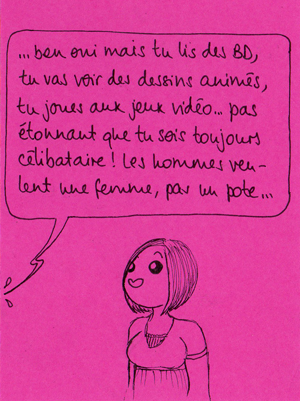 ...ben oui mais tu lis des BD,
tu vas voir des dessins animés,
tu joues aux jeux vidéo... pas
étonnant que tu sois toujours
célibataire! Les hommes veu-
lent une femme, pas un pote...